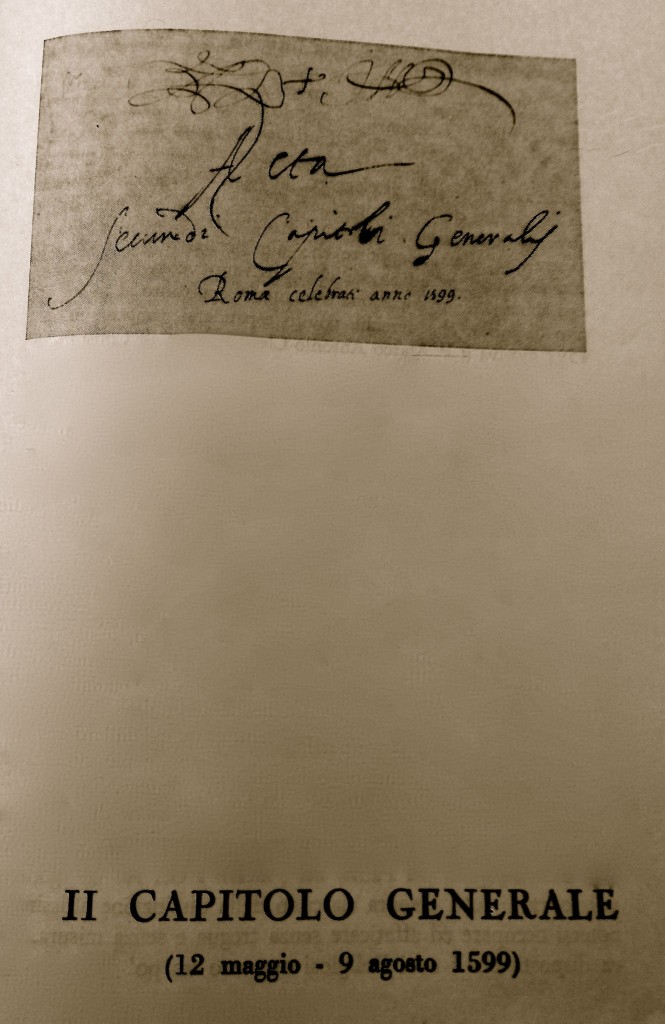 Acta
Secundi Capituli Generalis
Romæ celebrati anno 1599.
II CAPITOLO GENERALE
(12 maggio - 9 agosto 1599)